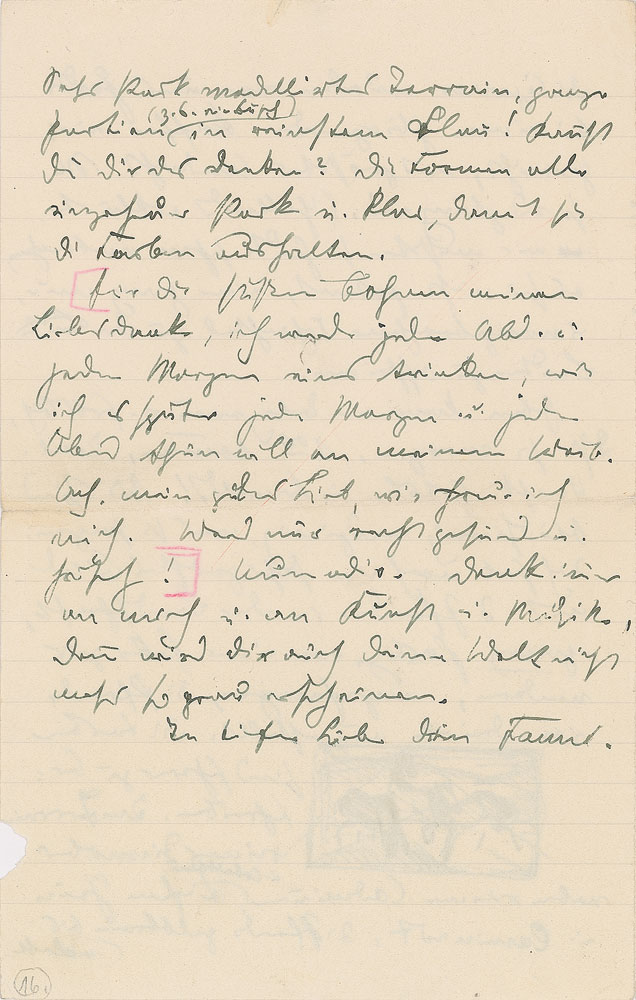 Sehr stark modelliertes Terrain, ganze
(z.b. ein Busch)
Partien in reinstem Blau! Kannst
du dir das denken? die Formen alle
ungeheuer stark u. klar, damit sie
die Farben aushalten.
Für die süßen Bohnen meinen
Liebesdank, ich werde jeden Abd. u.
jeden Morgen eins trinken, wie
ich es später jeden Morgen u. jeden
Abend thun will an meinem Weib.
Ach, mein gutes Lieb, wie freue ich
mich. Werd nur recht gesund u.
frisch! Nun adio. denk immer
an mich u. an Kunst u. Musik,
dann wird dir auch deine Welt nicht
mehr so grau erscheinen.
In tiefer Liebe dein Franz.
16.